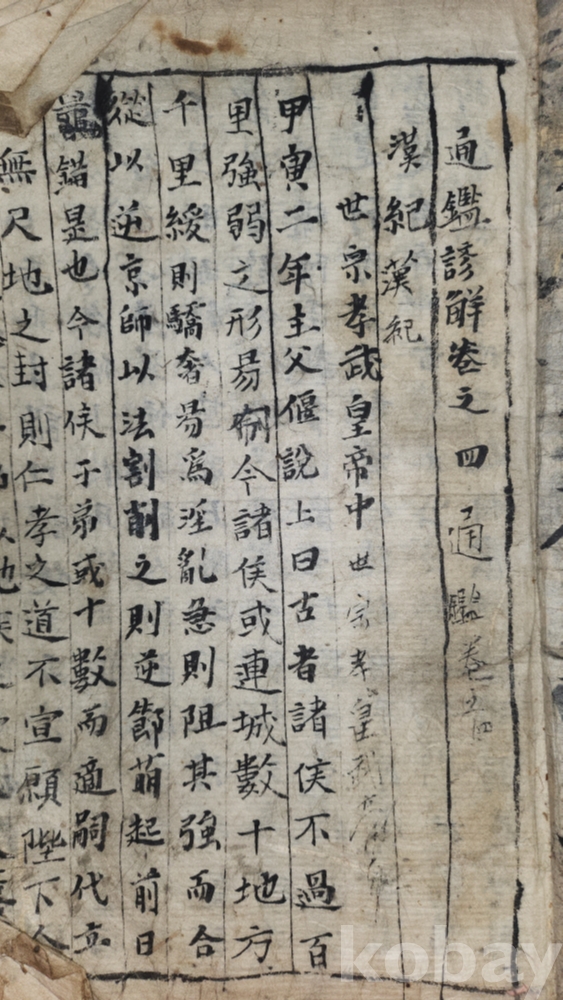 通鑑諺解卷之四 通鑑卷之四
漢紀漢紀
世宗孝武皇帝中 世宗孝皇武
甲寅二年主父偃說上曰古者諸侯不過百
里強弱之形易制今諸侯或連城數十地方
千里緩則驕奢易爲淫亂急則阻其強而合
從以逆京師以法割削之則逆節萌起前日
鼂錯是也今諸侯子弟或十數而適嗣代立
無尺地之封則仁孝之道不宣願陛下令
kobay